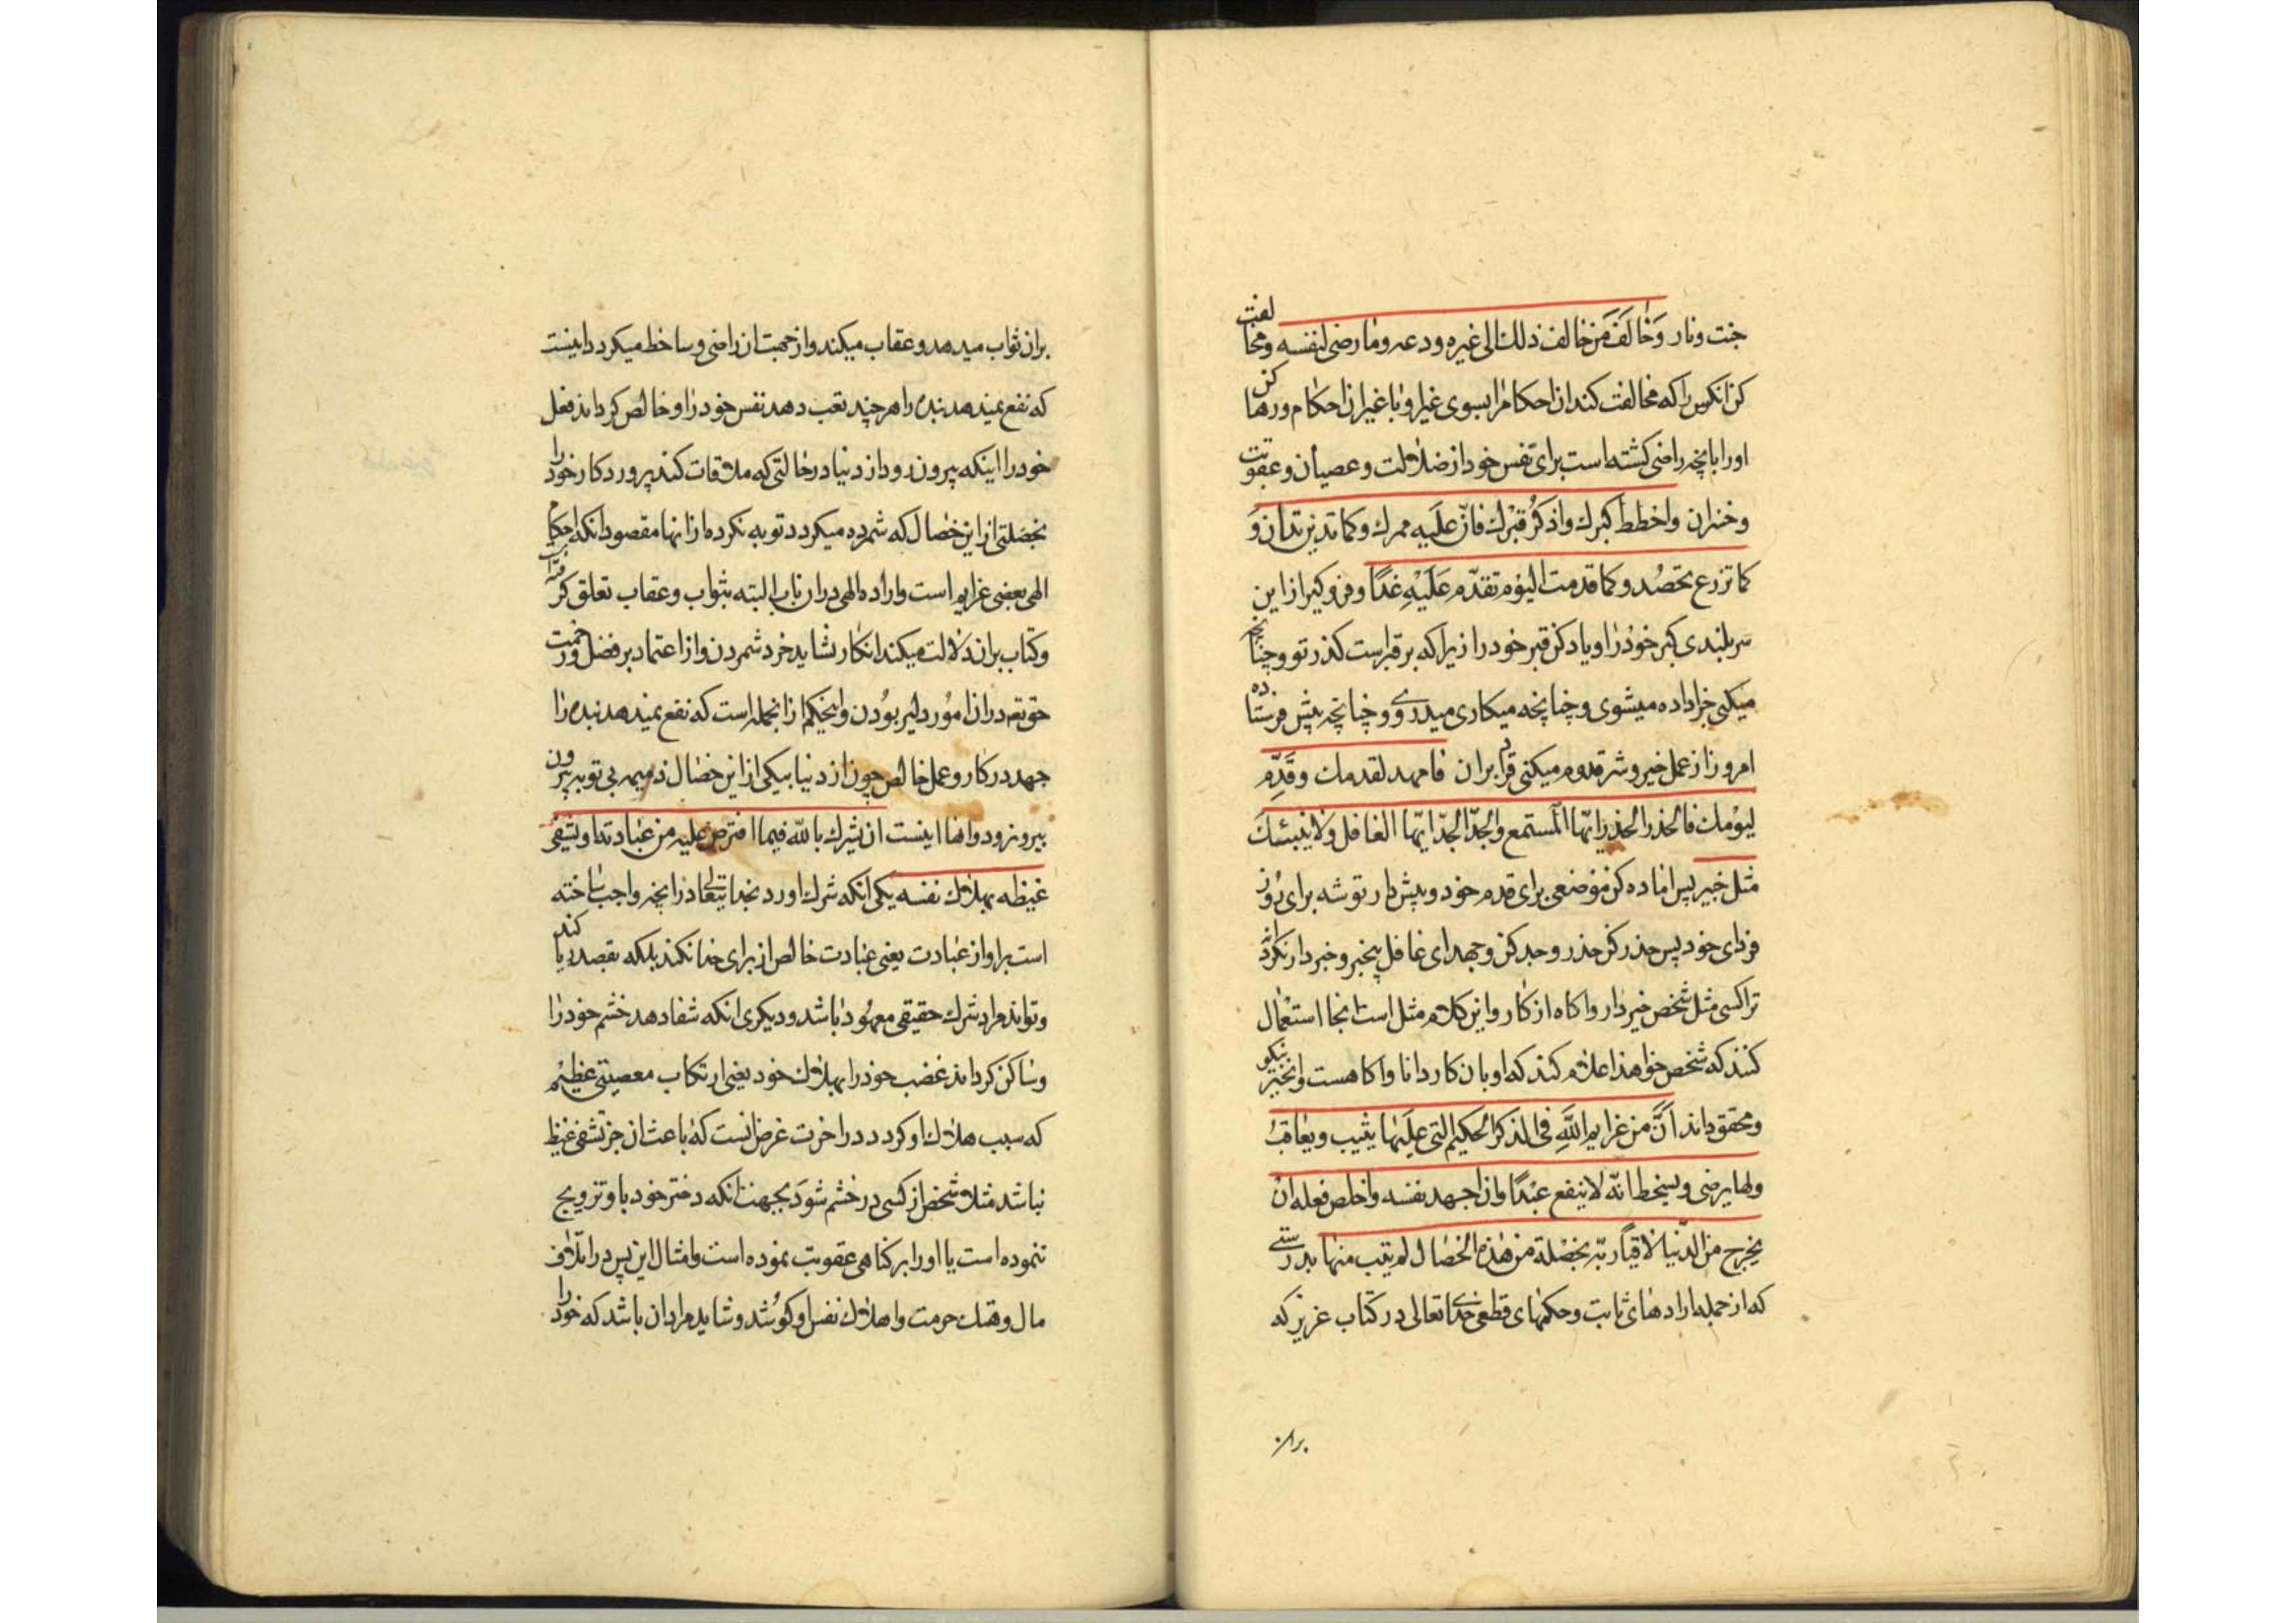 جنت و نار وَخٰالَفَ مَن خالف ذلك الى غيره ودعه ومٰا رضى لنفسه ومخالفت
كن انكس را كه مخالفت كند ان احكام را بسوى غير او با غير ان احكام و رها كن
اورا بانچه راضى كشته است براى نفس خود از ضلالت و عصيان و عقوبت
و خسران واحطط كبرك واذكُر قبرْك فانّ علَيه ممرك وكما تدين تدان وَ
كما تزرع تحصُد وكما قدمت اليوْم تقدّم عَلَيْهِ غدًا و فرو كير از اين
سربلندى كبر خوْد رٰا و ياد كن قبر خود را زيرا كه بر قبر است كذر تو و چنانچه
ميكنى جزا داده ميشوى و چنانچه ميكارى ميدروى و چنانچه پيش فرستاده
امروز از عمل خير و شر قدوم ميكنى فردا بران فامهد لقدمك وقَدِّم
ليوْمك فالحذر الحذر ايّها المستمع والجدّ الجدّ ايّها الغافل ولا ينبئك
مثل خبير پس اماده كن موضعى براى قدم خود و پيش دار توشه براى رُوز
فرداى خود پس حذر كن حذر و جد كن و جهد اى غافل بيخبر و خبردار نكرداند
ترا كسى مثل شخص خبردار و اكاه از كار و اين كلام مثل است انجا استعمال
كنند كه شخص خواهد اعلام كند كه او بان كار دانا و اكاهست و انچيز نيكو
و محقق داند انَّ من عزايم اللَّهِ فى الذكر الحكيم التى علَيهٰا يثيب ويعٰاقبُ
ولها يرضى ويسخط انّه لا ينفع عبْدًا وان اجهد نفسه واخلص فعله انْ
يخرج من الدّنيا لاقيًا ربّه بخصْلة من هٰذه الخصٰال لم يتب منهٰا بدرستى
كه از جمله ارادهٰاى ثابت و حكمهٰاى قطعى خداى تعالى در كتاب عزيز كه
بران
بران ثواب ميدهد و عقاب ميكند و از جهت ان راضى و ساخط ميكردد اينست
كه نفع نميدهد بنده را هر چند تعب دهد نفس خود رٰا و خالص كرداند فعل
خود را اينكه بيرون رود از دنيا در حٰالتى كه ملاقات كند پروردكار خود را
بخصلتى از اين خصٰال كه شمرده ميكردد توبه نكرده از انها مقصود انكه احكام
الهى بعضى عزايم است و اراده الهى در ان باب البته بثواب و عقاب تعلق كرفته
و كتاب بران دلالت ميكند انكار نشايد خرد شمردن و از اعتماد بر فضل و رحمت
حق تعه در ان امُور دلير بوُدن و اينحكم از انجمله است كه نفع نميدهد بنده رٰا
جهد در كار و عمل خالص چون از دنيا بيكى از اين خصٰال ذميمه بى توبه بيرون
بيرون رود و انها اينست ان يشرك باللّه فيما افترض عليه من عبٰادته او يشفى
غيظه بهلاك نفسه يكى انكه شرك اورد بخدايتعالى در انچه واجب ساخته
است بر او از عبٰادت يعنى عبٰادت خالص از براى خدا نكند بلكه بقصد ريا كند
و تواند مراد شرك حقيقى معهوُد باشد و ديكرى انكه شفا دهد خشم خود رٰا
و سٰاكن كرداند غضب خود را بهلاك خود يعنى ارتكاب معصيتى عظيْم
كه سبب هلاك او كردد در اخرت غرض انست كه باعث ان جز تشفى غيظ
نباشد مثلا شخص از كسى در خشم شوَد بجهت انكه دختر خود با او تزويج
ننموده است يا او را بر كناهى عقوبت نموده است و امثال اين پس در اتلاف
مال و هتك حرمت و اهلاك نفس او كوُشد و شايد مراد ان باشد كه خود را